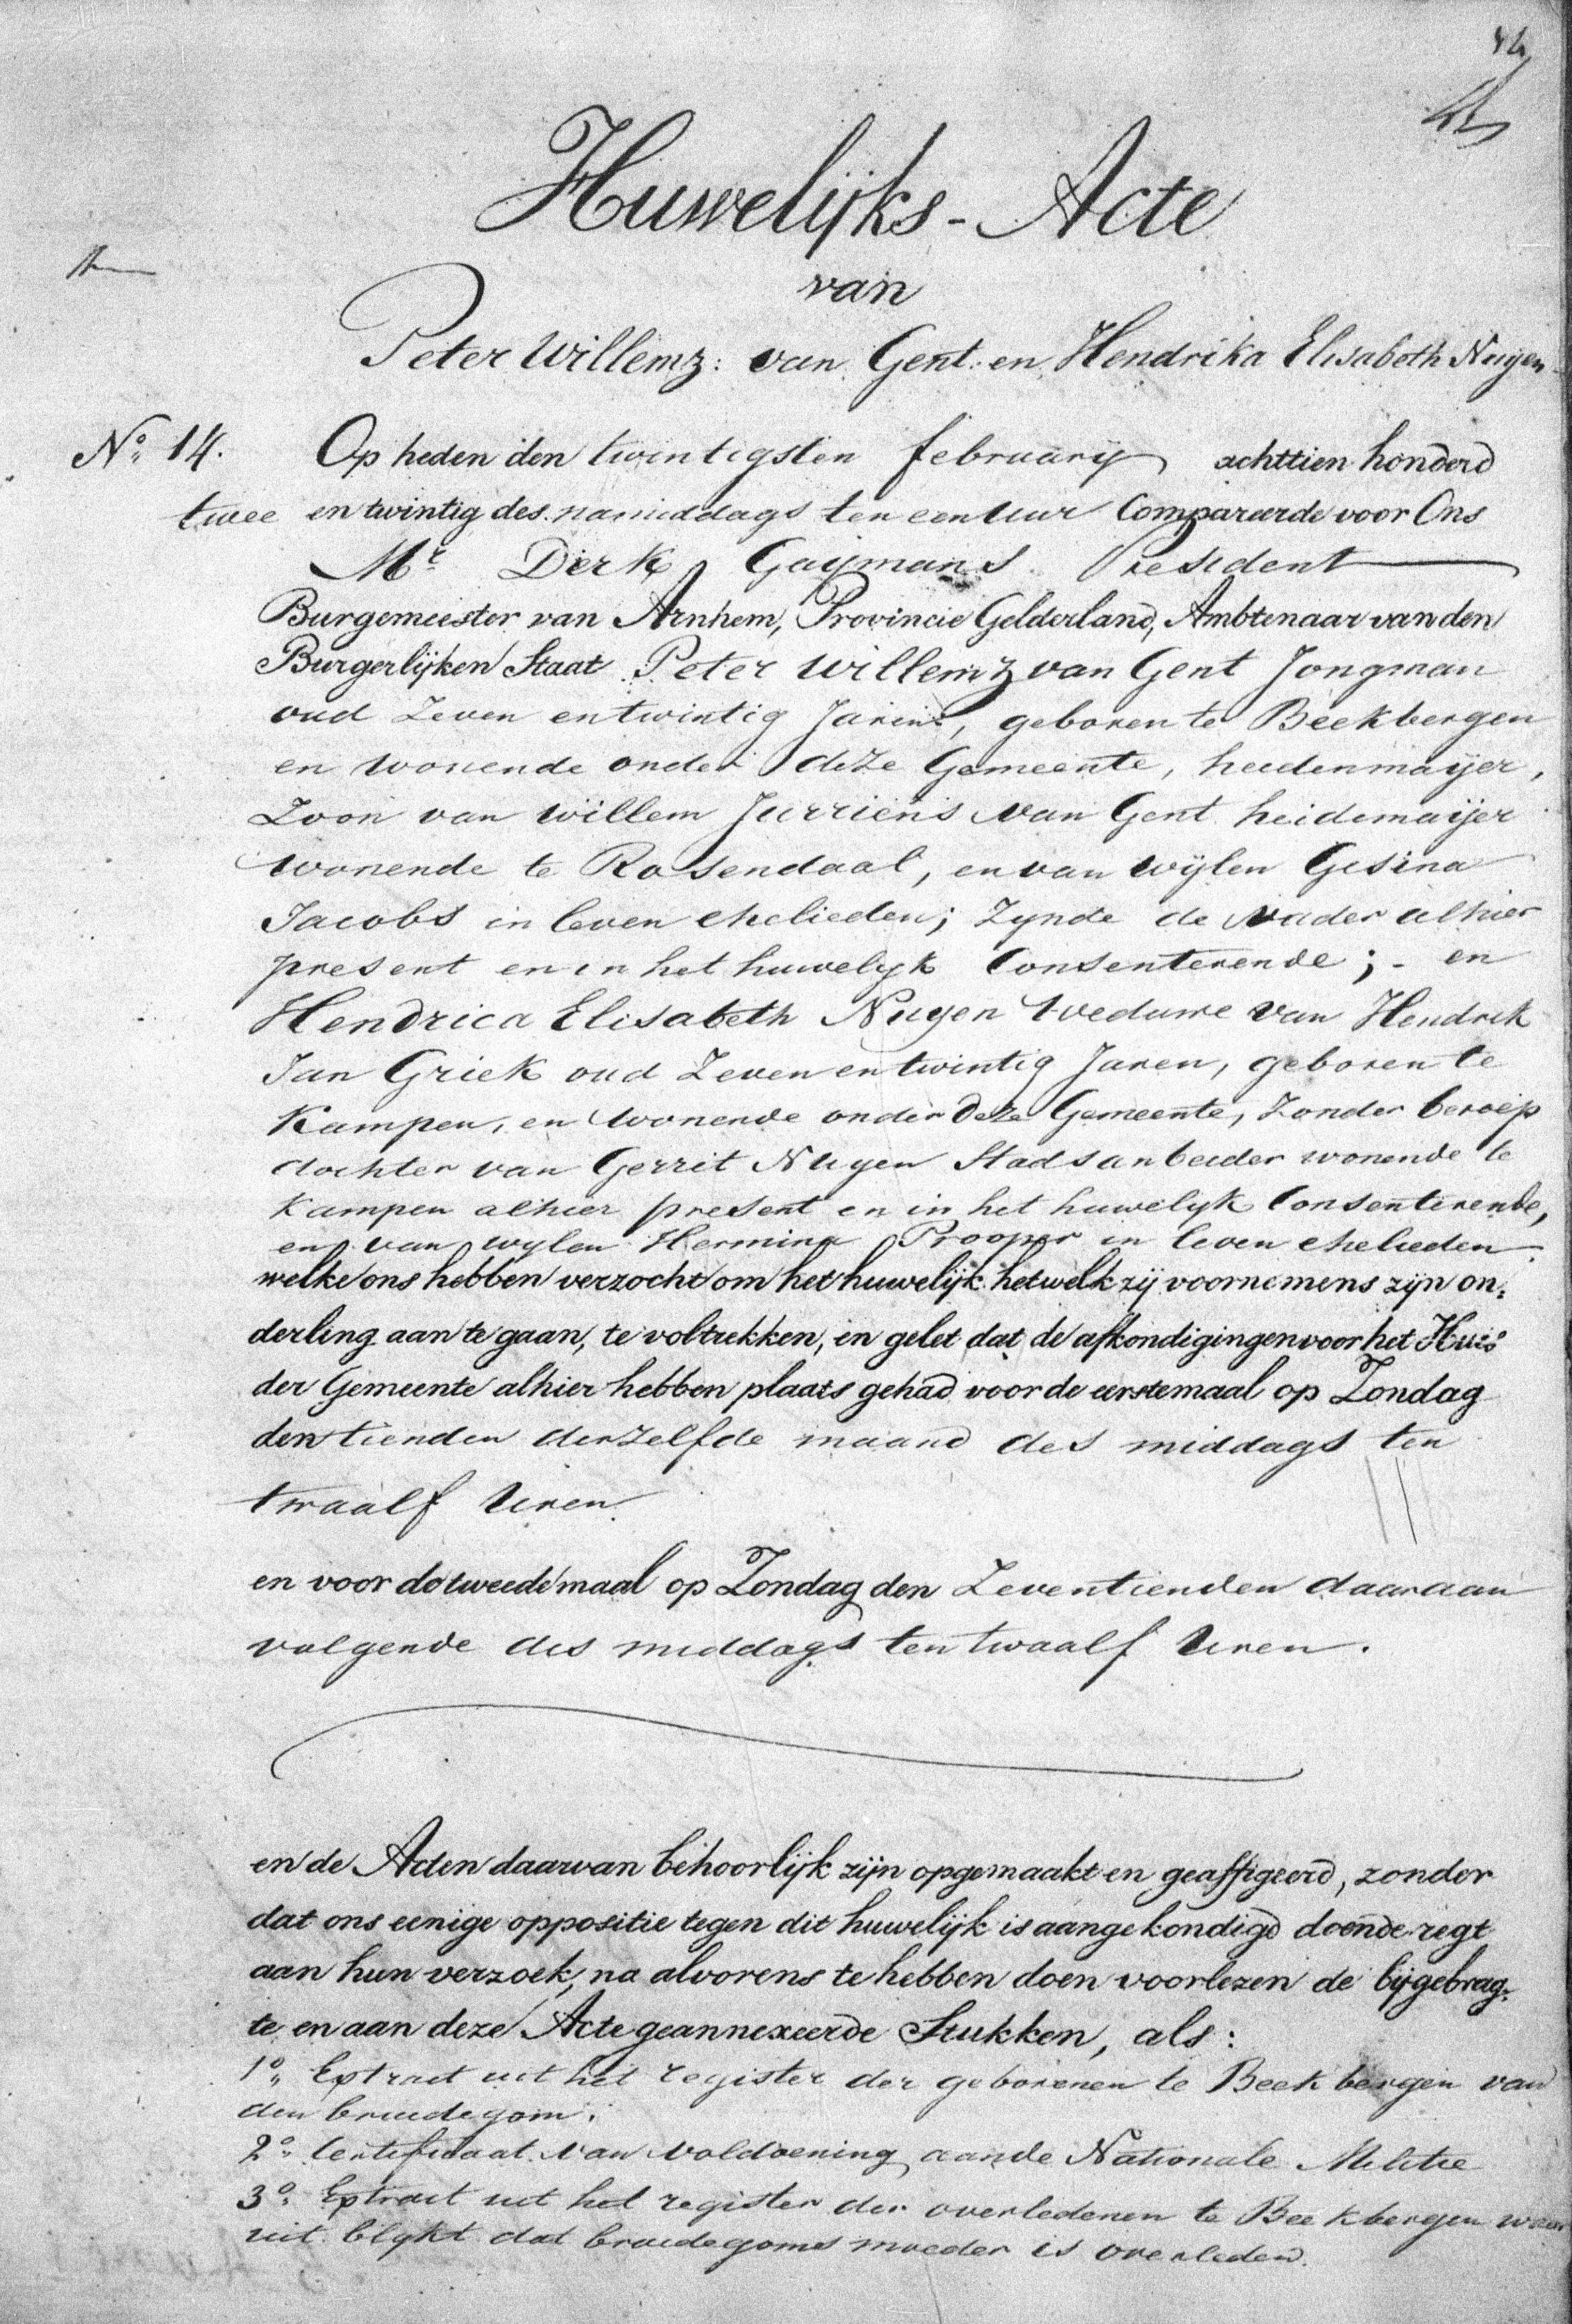 Huwelijks-Acte
van
Peter Willemz: van Gent: en Hendrika Elisabeth Nuyen
No. 14. Op heden den twintigsten februarij achttien honderd
twee en twintig des namiddags ten een uur Compareerde voor Ons
Mr. Derk Gaymans President
Burgemeester van Arnhem, Provincie Gelderland, Ambtenaar van den
Burgerlijken Staat Peter Willemz van Gent Jongman
oud Zeven en twintig Jaren, geboren te Beekbergen
en wonende onder deze Gemeente, heidenmaijer,
Zoon van Willem Jurriens van Gent heidemaijer
wonende te Rosendaal, en van wijlen Gesina
Jacobs in leven ehelieden; Zynde de Vader alhier
present en in het huwelyk Consenterende; - en
Hendrica Elisabeth Nuyen weduwe van Hendrik
Jan Griek oud Zeven en twintig Jaren, geboren te
Kampen, en wonende onder deze Gemeente, Zonder beroep
dochter van Gerrit Nuyen Stadsarbeider wonende te
Kampen alhier present en in het huwelyk Consenterende,
en van wylen Hermina Prooper in leven ehelieden
welke ons hebben verzocht om het huwelijk hetwelk zij voornemens zijn on=
derling aan te gaan, te voltrekken, en gelet dat de afkondigingen voor het Huis
der Gemeente alhier hebben plaats gehad voor de eerstemaal op Zondag
den tienden derzelfde maand des middags ten
twaalf Uren
en voor de tweede maal op Zondag den Zeventienden daaraan
volgende des middags ten twaalf Uren.
en de Acten daarvan behoorlijk zijn opgemaakt en geaffigeerd, zonder
dat ons eenige oppositie tegen dit huwelijk is aangekondigd doende regt
aan hun verzoek, na alvorens te hebben doen voorlezen de bijgebrag=
te en aan deze Acte geannexeerde Stukken, als:
1o. Extract uit het register der geborenen te Beekbergen van
den bruidegom.
2o. Certificaat van voldoening aan de Nationale Militie
3o. Extract uit het register der overledenen te Beekbergen waar
uit blykt dat bruidegoms moeder is overleden.